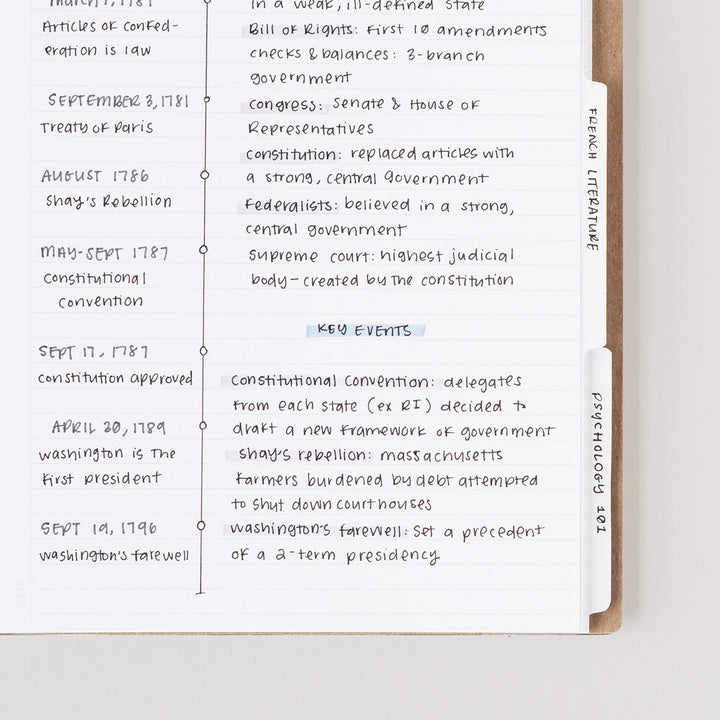 March 1, 1781
Articles of Confed-
eration is law
SEPTEMBER 3, 1781
Treaty of Paris
AUGUST 1786
Shay's Rebellion
MAY-SEPT 1787
Constitutional
Convention
SEPT 17, 1787
constitution approved
APRIL 30, 1789
washington is the
first president
SEPT 19, 1796
washington's farewell
in a weak, ill-defined state
Bill of Rights: first 10 amendments
checks & balances: 3-branch
government
congress: Senate & House of
Representatives
constitution: replaced articles with
a strong, central government
Federalists: believed in a strong,
central government
Supreme court: highest judicial
body-created by the constitution
KEY EVENTS
Constitutional Convention: delegates
from each state (ex RI) decided to
draft a new framework of government
shay's rebellion: massachusetts
farmers burdened by debt attempted
to shut down courthouses
washington's farewell: set a precedent
of a 2-term presidency
FRENCH LITERATURE
PSYCHOLOGY 101